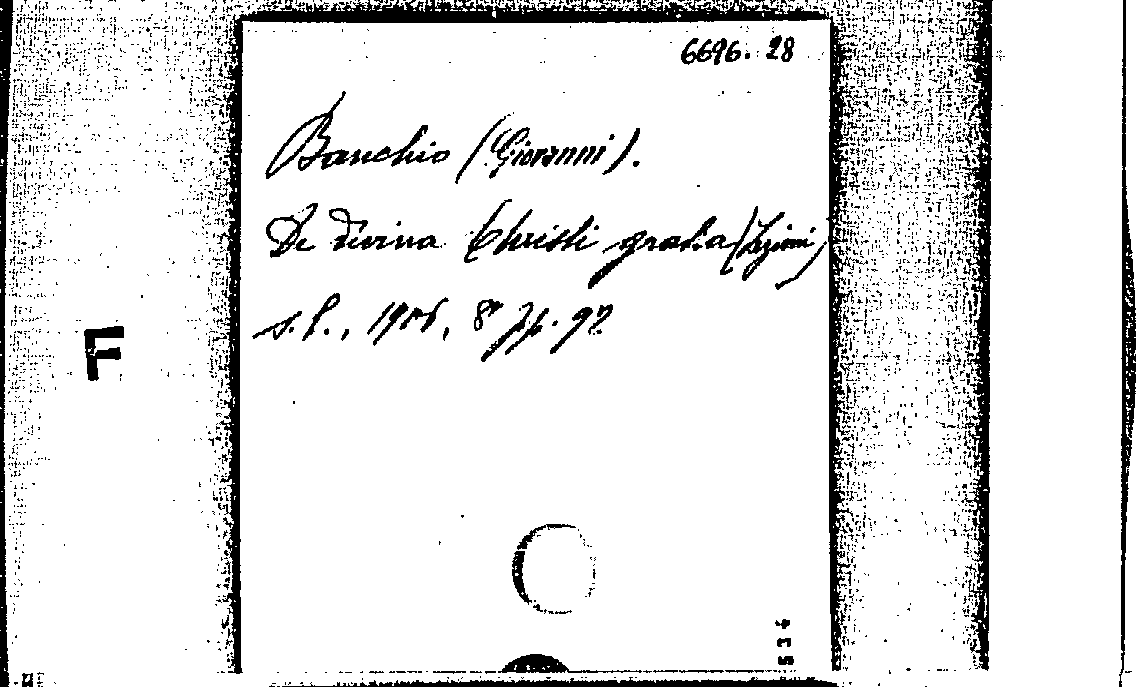 6696. 28
Banchio (Giovanni).
De divina Christi gratia (Lezioni)
s.l., 1906, 8° pp. 92
F
534